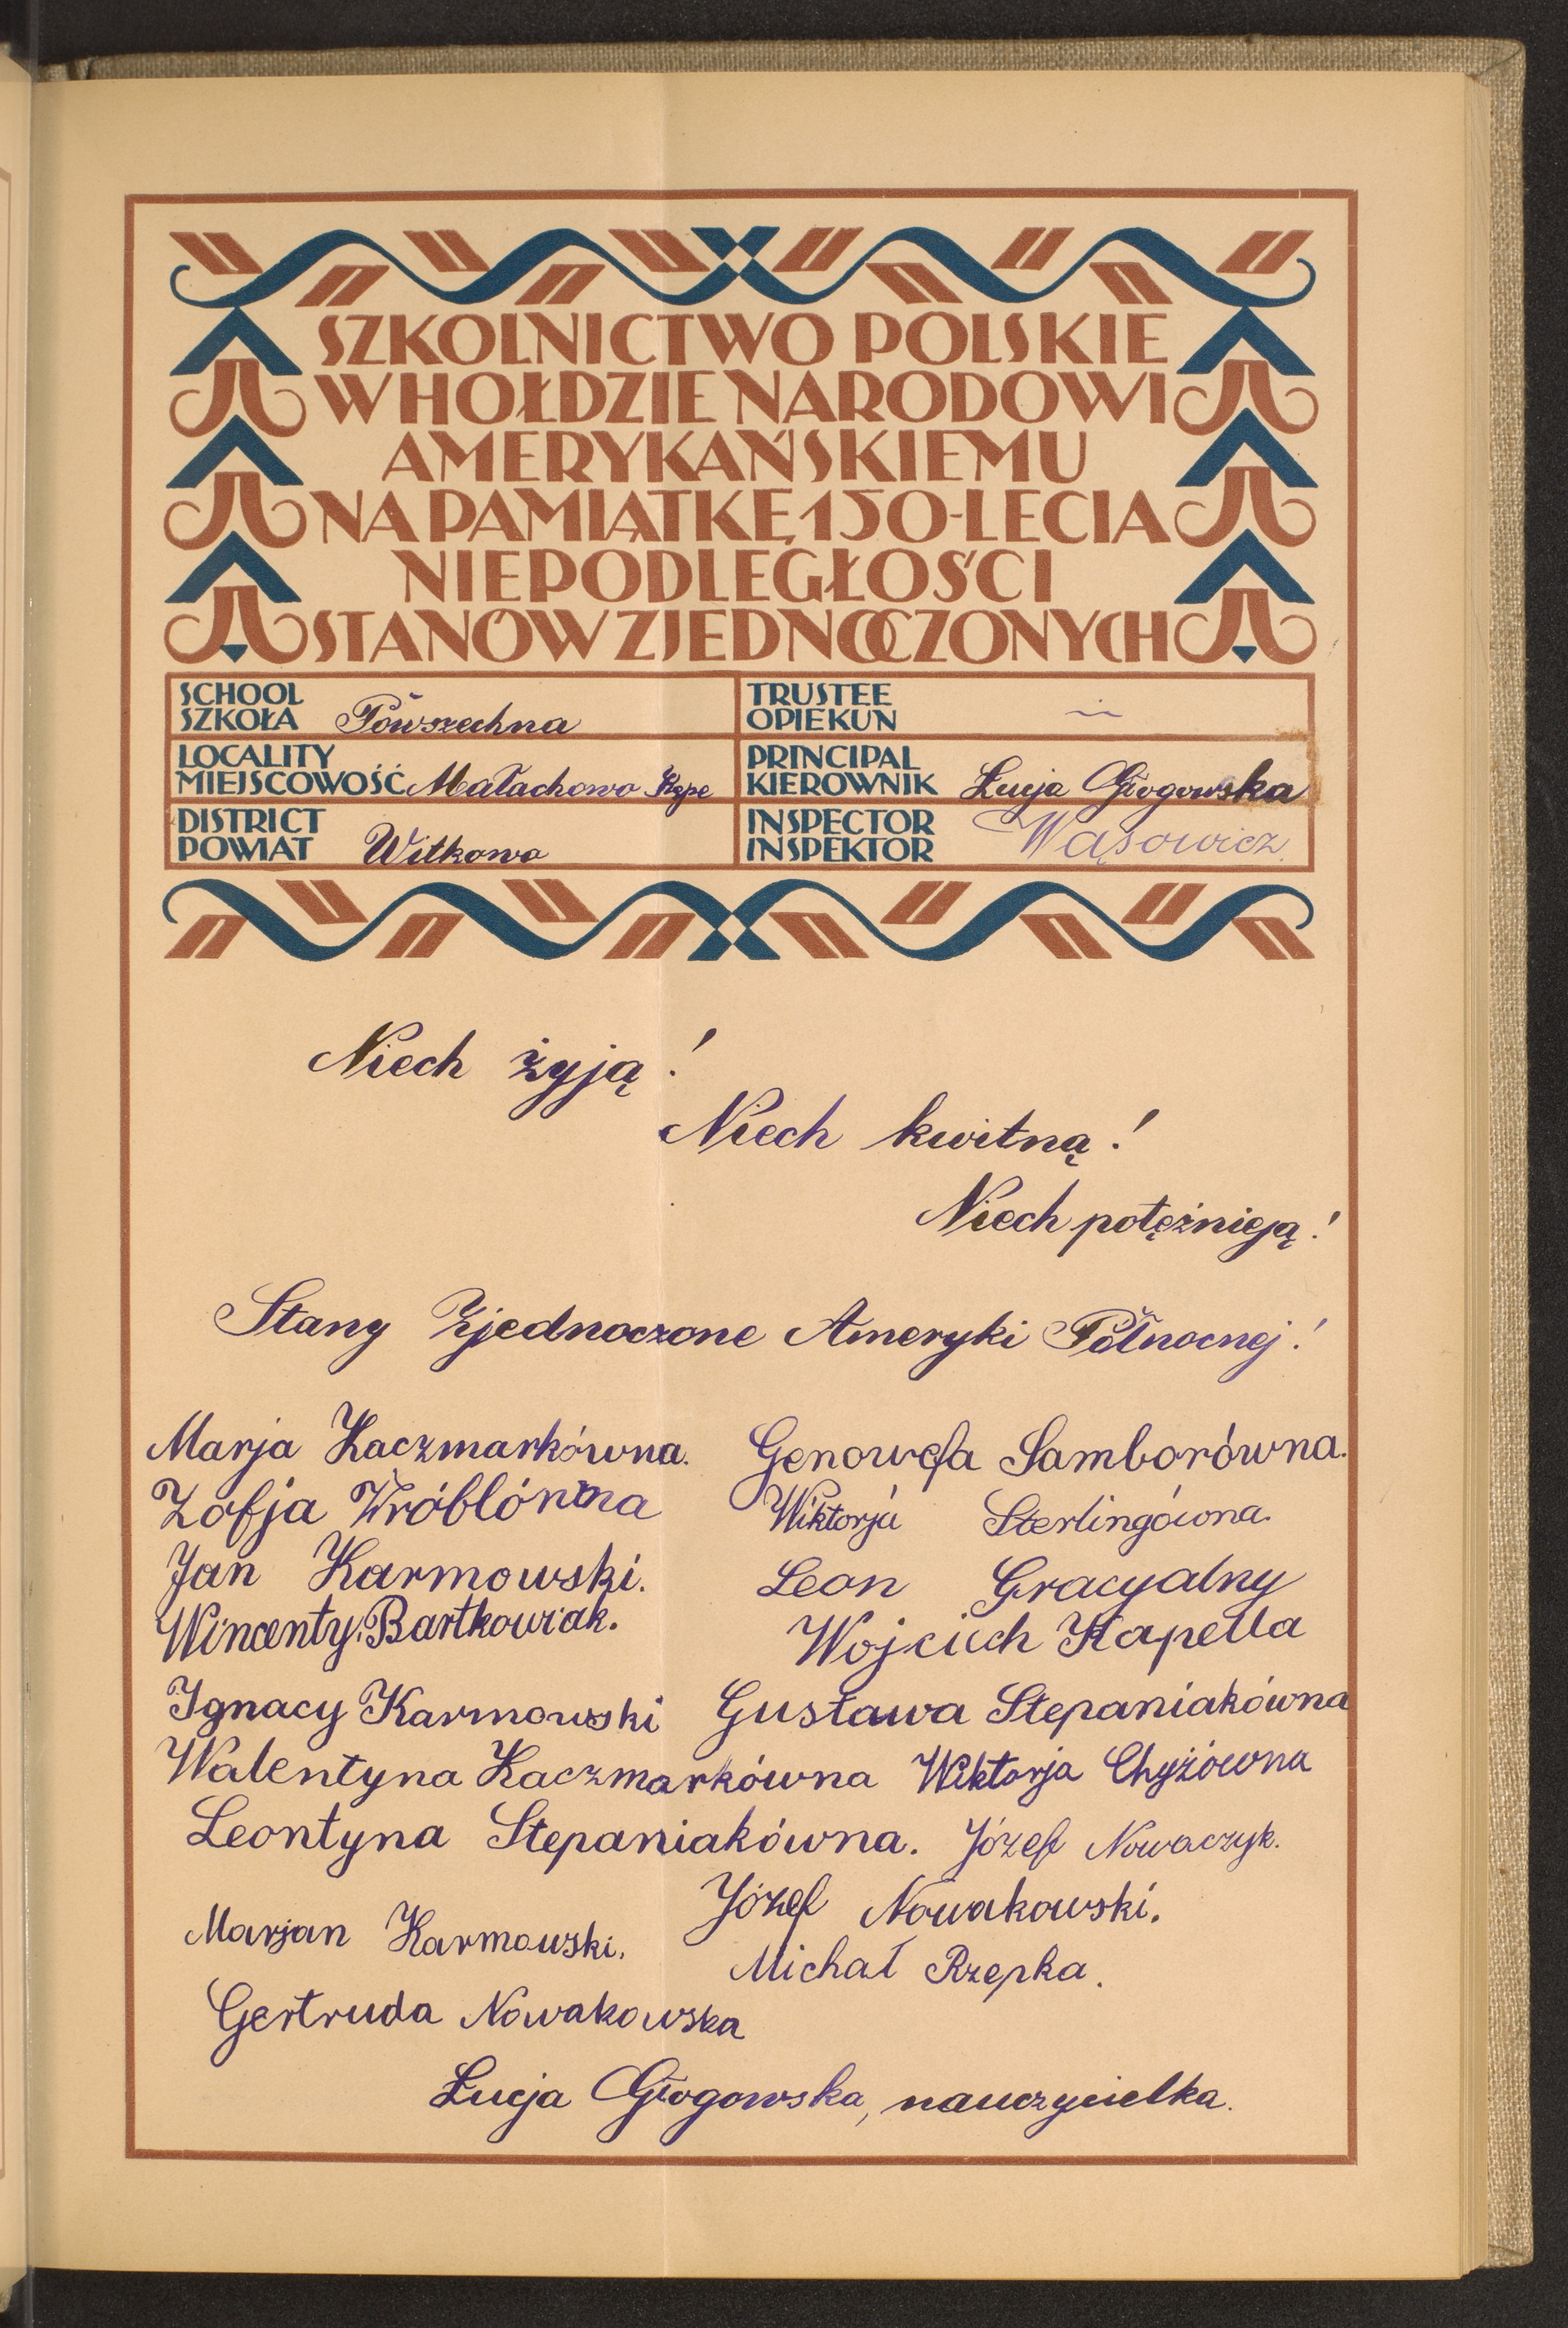 SZKOLNICTWO POLSKIE
W HOŁDZIE NARODOWI
AMERYKAŃSKIEMU
NA PAMIĄTKĘ 150-LECIA
NIEPODLEGŁOŚCI
STANÓW ZJEDNOCZONYCH
SCHOOL
SZKOŁA Powszechna
TRUSTEE
OPIEKUN
LOCALITY
MIEJSCOWOŚĆ Małachowo Kępe
PRINCIPAL
KIEROWNIK Łucja Głogowska
DISTRICT
POWIAT Witkowo
INSPECTOR
INSPEKTOR Wąsowicz
Niech żyją!
Niech kwitną!
Niech potężnieją!
Stany Zjednoczone Ameryki Północnej!
Marja Kaczmarkówna. Genowefa Samborówna.
Zofja Wróblówna Wiktorja Sterlingówna.
Jan Karmowski. Leon Gracyalny
Wincenty Bartkowiak. Wojciech Kapella
Ignacy Karmowski Gustawa Stepaniakówna
Walentyna Kaczmarkówna Wiktorja Chyżówna
Leontyna Stepaniakówna. Józef Nowaczyk.
Józef Nowakowski.
Marjan Karmowski.
Michał Rzepka.
Gertruda Nowakowska
Łucja Głogowska, nauczycielka.